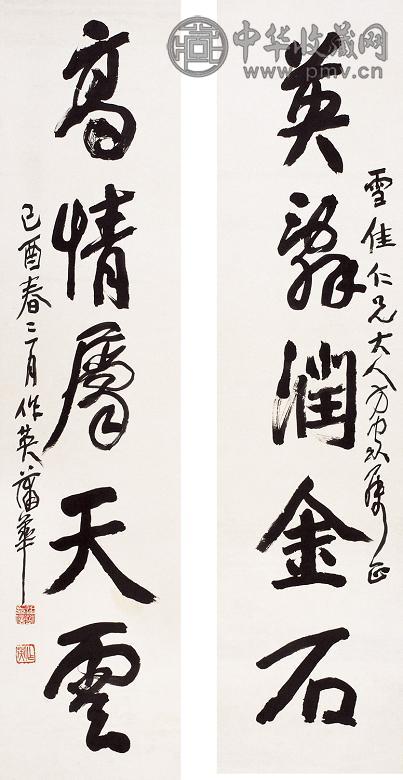 中华收藏网
www.pmv.cn
英辭潤金石
雪佳仁兄大人方家 屬正
高情屬天雲
己酉春三月作英蒲華